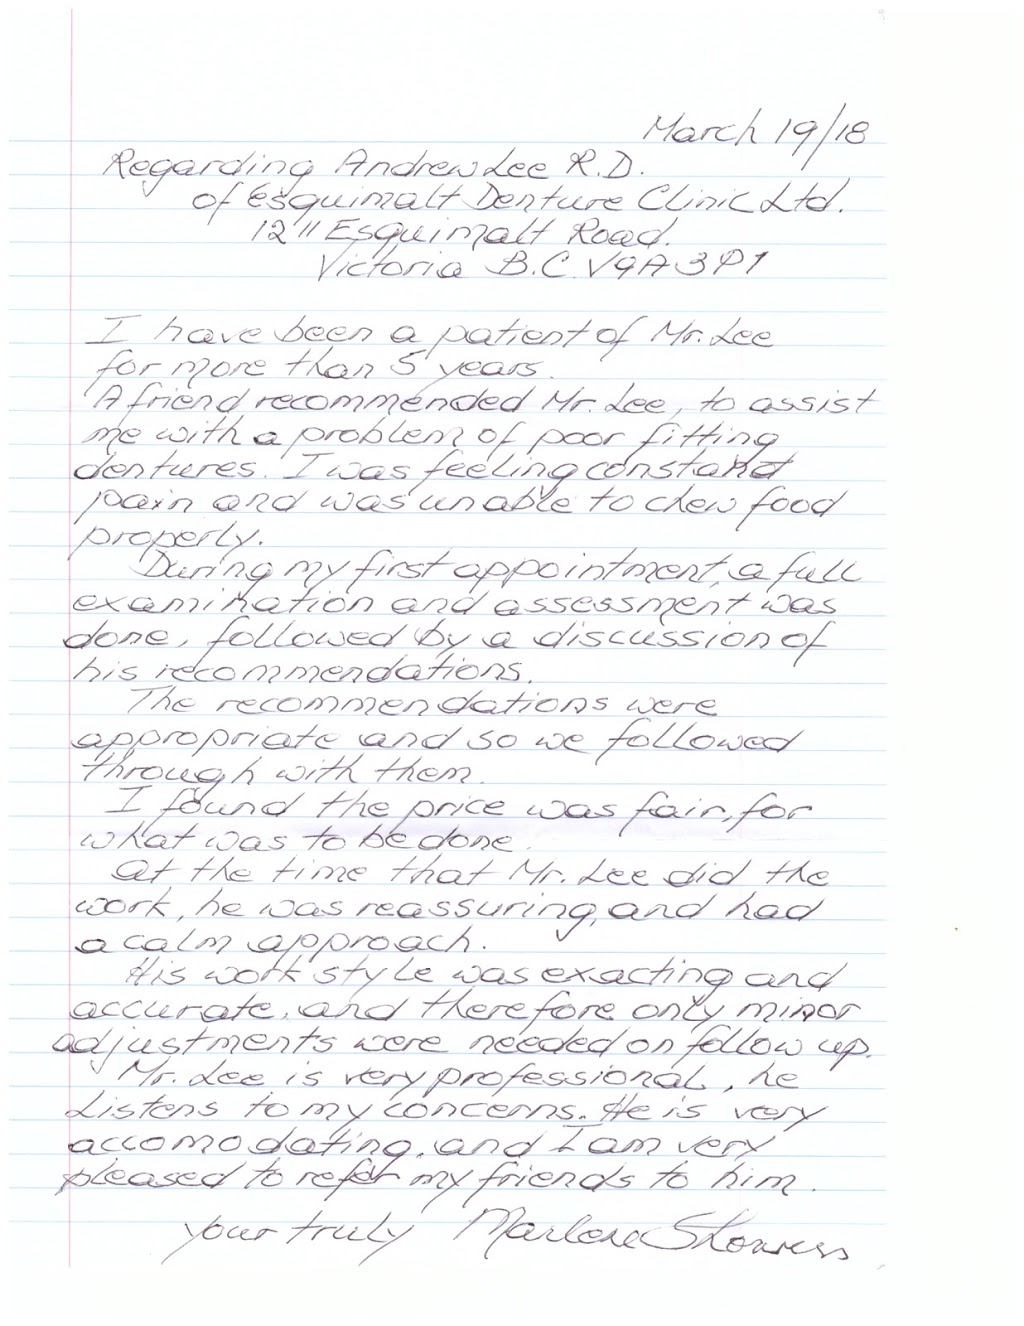 March 19/18
Regarding Andrew Lee R.D.
of Esquimalt Denture Clinic Ltd.
1211 Esquimalt Road.
Victoria B.C. V9A 3P1
I have been a patient of Mr. Lee
for more than 5 years.
A friend recommended Mr. Lee, to assist
me with a problem of poor fitting
dentures. I was feeling constant
pain and was unable to chew food
properly.
During my first appointment, a full
examination and assessment was
done, followed by a discussion of
his recommendations.
The recommendations were
appropriate and so we followed
through with them.
I found the price was fair, for
what was to be done.
At the time that Mr. Lee did the
work, he was reassuring, and had
a calm approach.
His work style was exacting and
accurate, and therefore only minor
adjustments were needed on follow up.
Mr. Lee is very professional, he
Listens to my concerns. He is very
accomodating, and I am very
pleased to refer my friends to him.
your truly Marlene